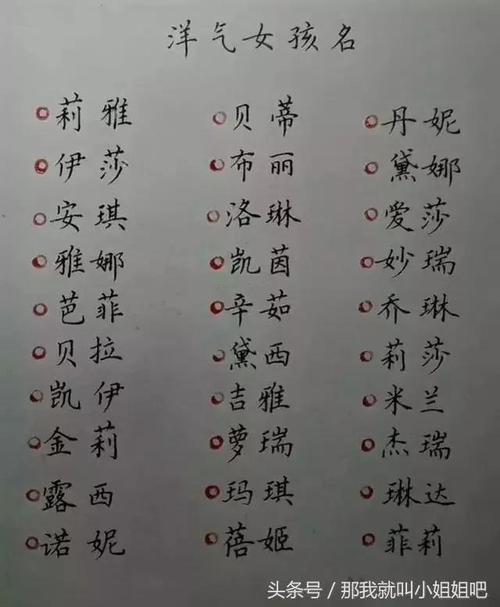 洋气女孩名
莉雅 贝蒂 丹妮
伊莎 布丽 黛娜
安琪 洛琳 爱莎
雅娜 凯茵 妙瑞
芭菲 辛茹 乔琳
贝拉 黛西 莉莎
凯伊 吉雅 米兰
金莉 萝瑞 杰瑞
露西 玛琪 琳达
诺妮 蓓姬 菲莉
头条号/那我就叫小姐姐吧